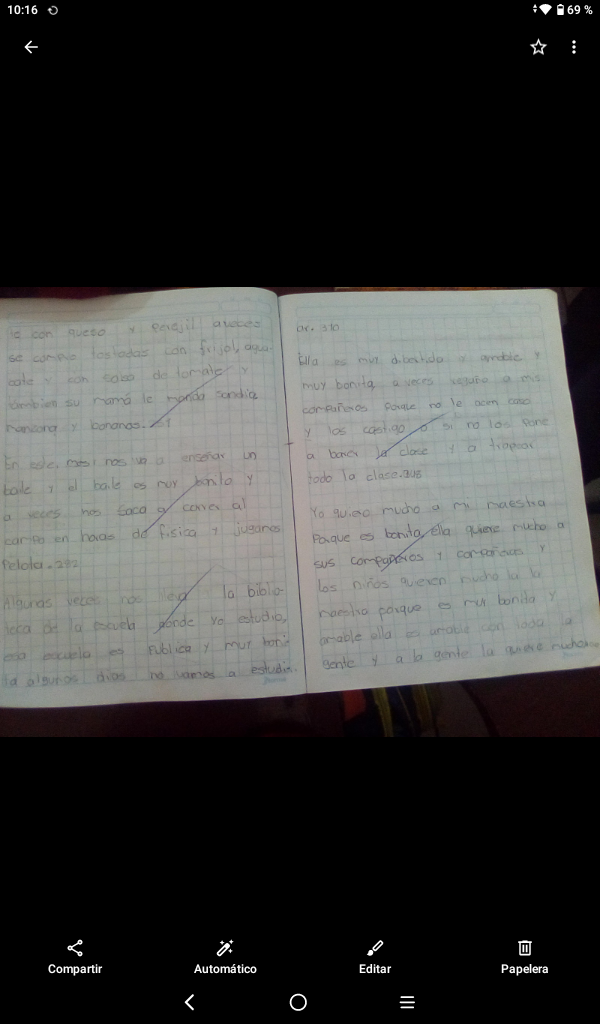 10:16
69 %
se comive tostadas con frijol, agua-
cate y con salsa de tomate y
tambien su mamá le manda sandia
manzana y bananos.
En este, mes, nos va a enseñar un
baile y el baile es muy bonito y
a veces nos saca a correr al
campo en horas de fisica y jugamos
Pelota. 292
Algunas veces nos lleva la biblio-
teca de la escuela donde yo estudio,
esa escuela es Publica y muy boni-
ta algunos dias no vamos a estudia
ar. 310
Ella es muy dibertida y amable y
muy bonita a veces regaña a mis
compañeros porque no le acen caso
y los castiga o si no los pone
a barer la clase y a trapear
todo la clase.
Yo quiero mucho a mi maestra
Porque es bonita, ella quiere mucho a
sus compañeros y compañeras y
los niños quieren mucho la la
maestra porque es muy bonita y
amable ella es amable con toda la
gente y a la gente la quiere mucho
Compartir
Automático
Editar
Papelera